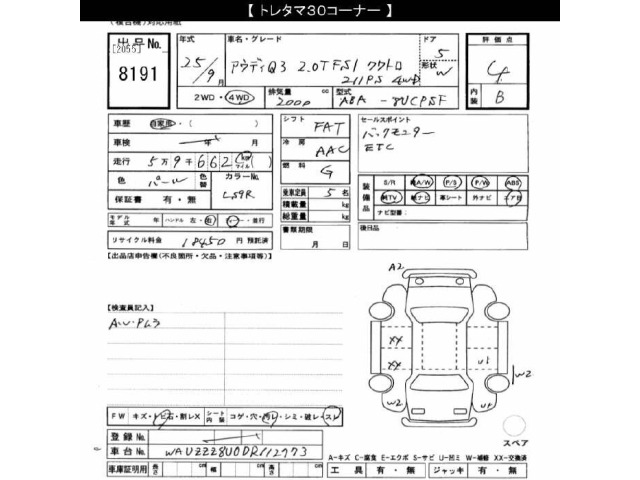 【 トレタマ30コーナー 】
(複合機)対応用紙
出品No.
[2055]
8191
年式
25/9月
車名・グレード
アウディQ3 2.0TFSI クワトロ
211PS 4WD
ドア
5
形状
W
評価点
4
内装
B
2WD・4WD
排気量
2000
cc
型式
ABA-8UCPSF
車歴
自家用・( )
車検
年 月
走行
5万9千662
km
マイル
( )
色
パール
色替
カラーNo.
LS9R
保証書 有・無
モデル年式
年
ハンドル 左・右
ディーラー・並行
リサイクル料金 18450円 預託済
シフト
FAT
冷房
AAC
燃料
G
乗車定員 5名
積載量 kg
総重量 kg
書類期限
月 日
セールスポイント
バックモニター
ETC
装備品
S/R
A/W
P/S
P/W
ABS
TV
ナビ
革シート
外ナビ
エアB
ナビ型番:
後日品
【出品店申告欄(不良箇所・欠品・注意事項等)】
【検査員記入】
A・U・PL3
A2
XX
XX
U1
W2
W2
U1
スペア
FW キズ・トビ石・割レX
シート内装
コゲ・穴・汚レ・シミ・破レ・スレ
登録No.
車台No.
WAUZZZ8U0DR112773
車庫証明用
長さ
cm
幅
cm
高さ
cm
A-キズ C-腐食 E-エクボ S-サビ U-凹ミ W-補修 XX-交換済
工具 有・無
ジャッキ 有・無